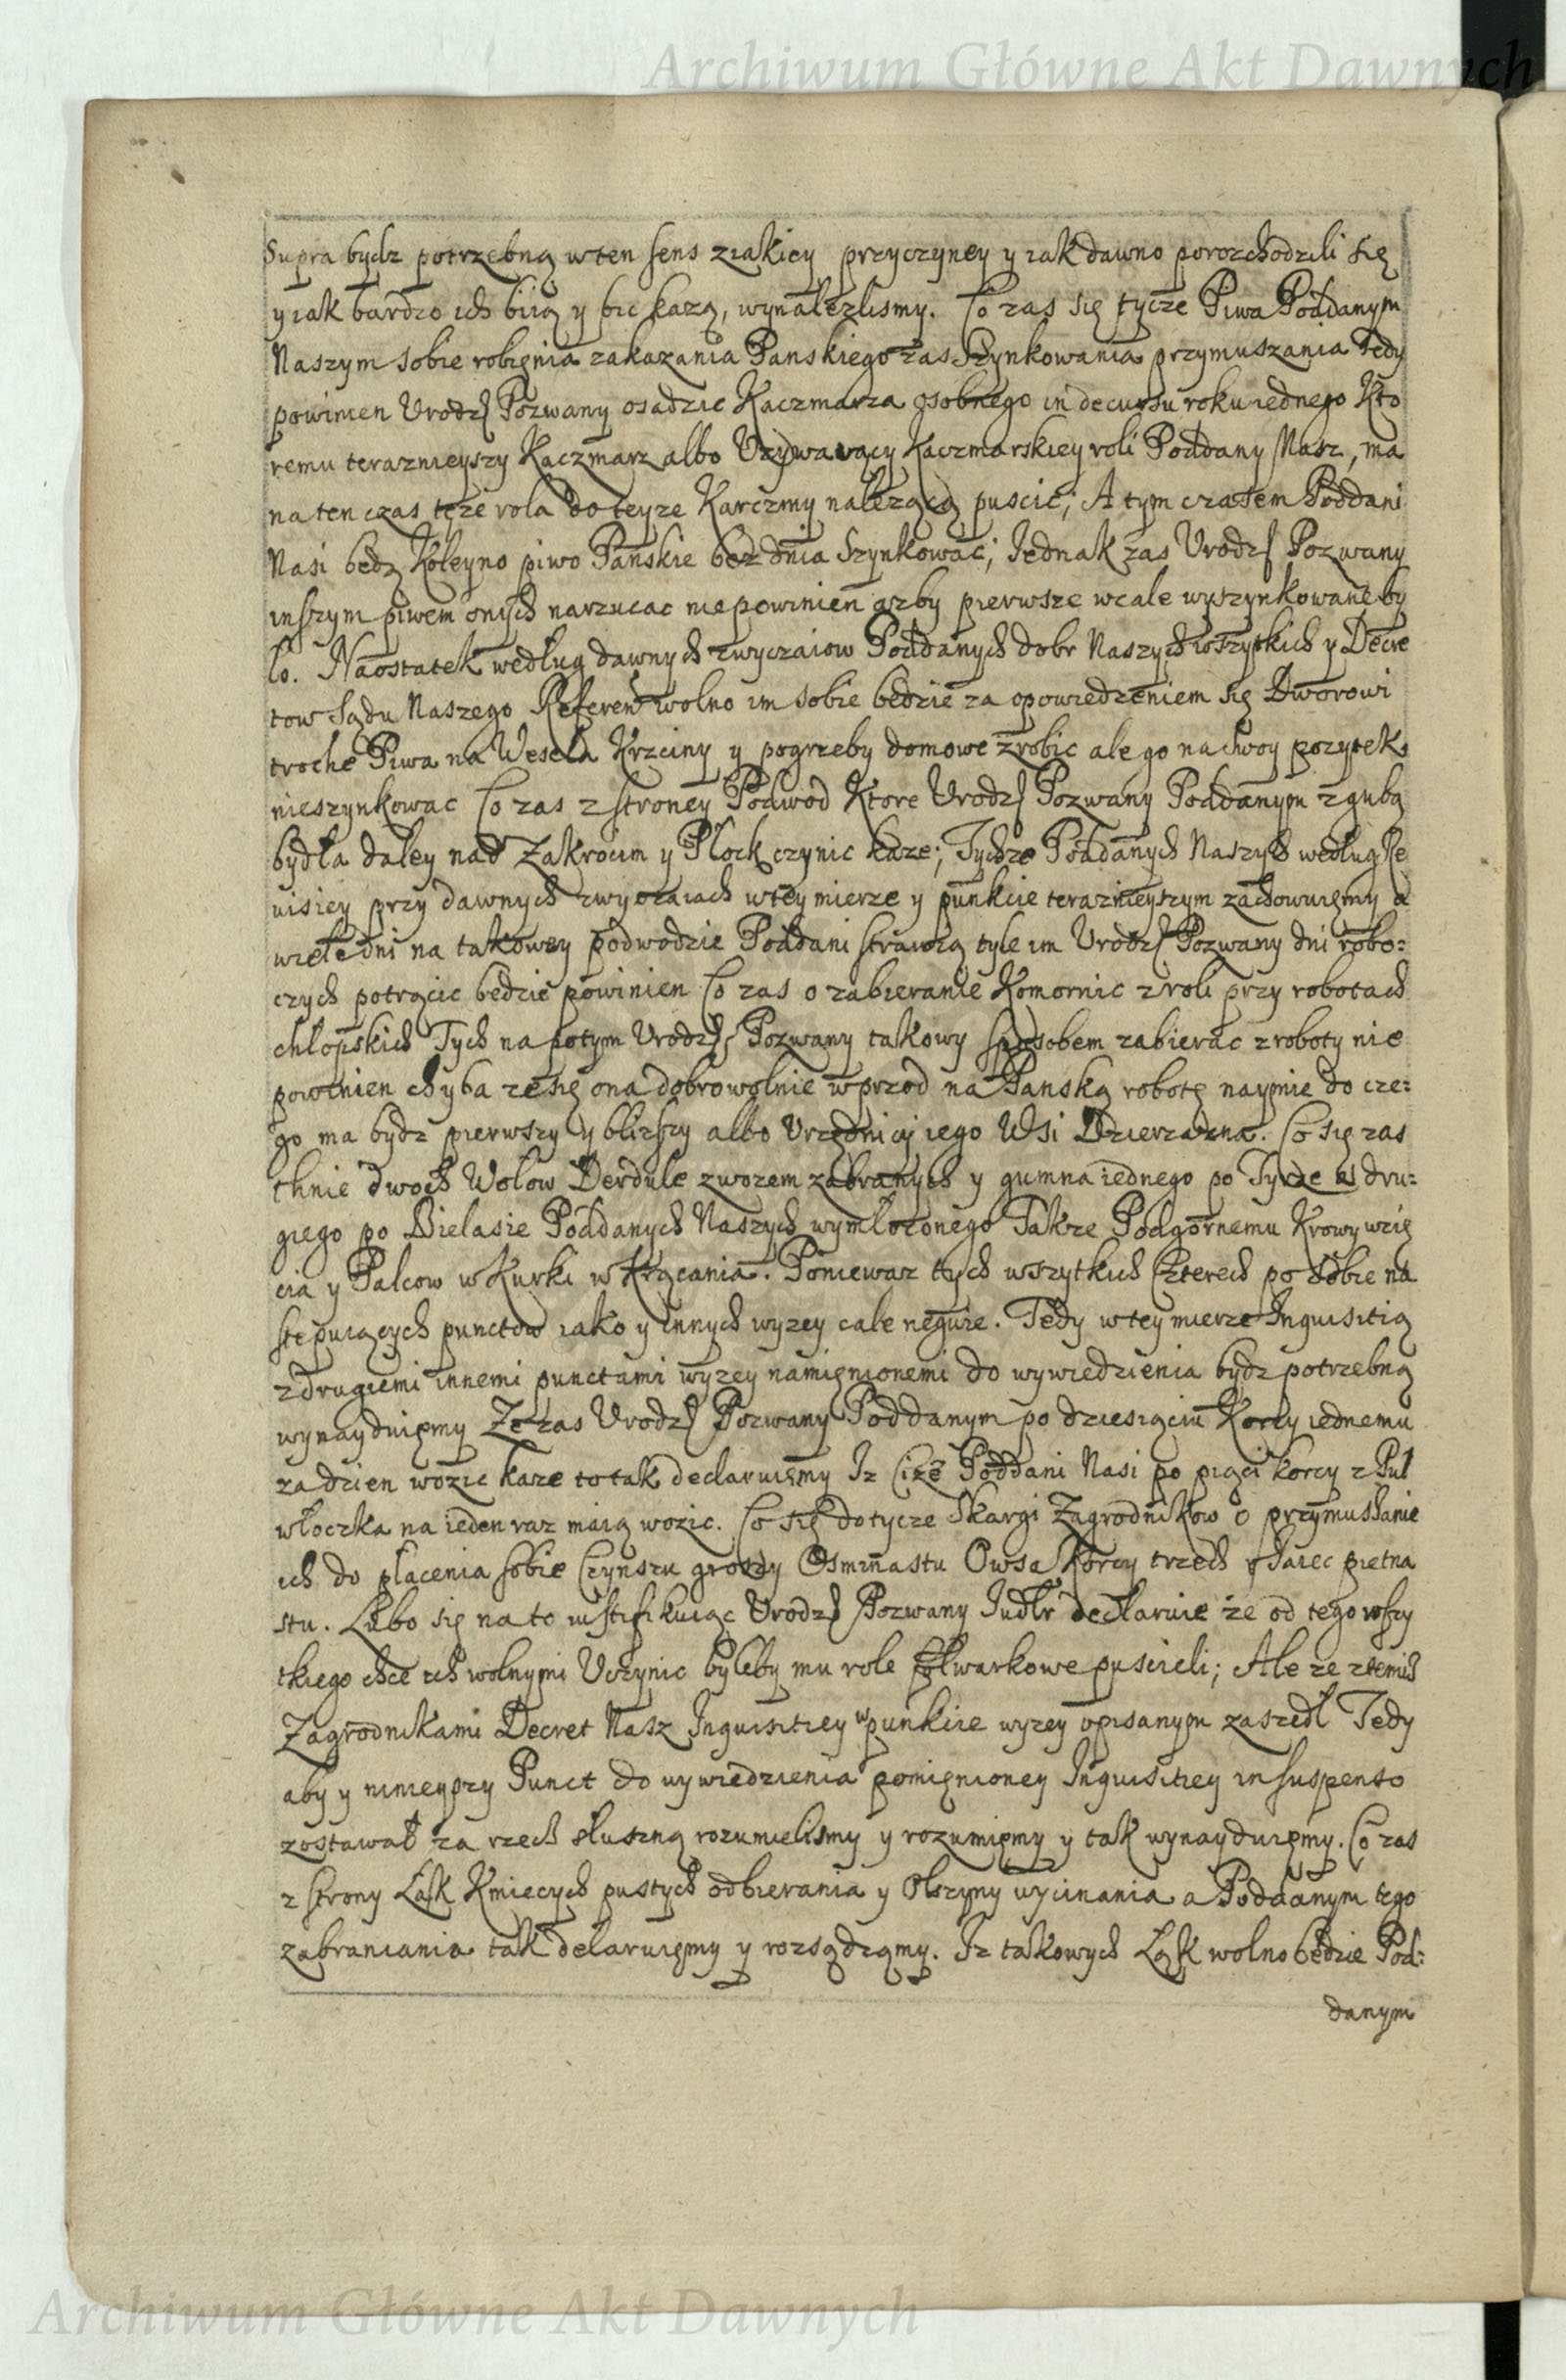 Archiwum Główne Akt Dawnych
Supra bydz potrzebną w ten sens z iakiey przyczyney y iak dawno porozchodzili się
y iak bardzo ich biią y bic kazą, wynalezlismy. Co zas się tycze Piwa Poddanym
Naszym sobie robięnia zakazania Panskiego zas Szynkowania przymuszania Tedy
powinien Urodz Pozwany osadzic Kaczmarza osobnego in decursu roku iednego Kto
remu teraznieyszy Kaczmarz albo Uzywaiący Kaczmarskiey roli Poddany Nasz, ma
na ten czas tęze rola do teyze Karczmy nalezącą puscic; A tym czasem Poddani
Nasi będą Koleyno piwo Panskie bez dnia Szynkowac; Jednak zas Urodz Pozwany
inszym piwem onych narzucac niepowinien azby pierwsze wcale wyszynkowane by
lo. Naostatek według dawnych zwyczaiow Poddanych dobr Naszych wszytkich y Decre
tow Sądu Naszego Referen wolno im sobie bedzie za opowiedzeniem się Dworowi
troche Piwa na Wesela Krzciny y pogrzeby domowe zrobic ale go na swoy pozytek
nieszynkowac Co zas z stroney Podwod Ktore Urodz Pozwany Poddanym z gubą
bydła daley nad Zakrocim y Plock czynic kaze; Tychze Poddanych Naszych według Re
uisiey przy dawnych zwyczaiach w tey mierze y punkcie teraznieyszym zachowuięmy a
wiele dni na takowey podwodzie Poddani strawią tyle im Urodz Pozwany dni robo:
czych potrącic bedzie powinien Co zas o zabieranie Komornic z roli przy robotach
chłopskich Tych na potym Urodz Pozwany takowy sposobem zabierac z roboty nie
powinien chyba ze się ona dobrowolnie w przod na Panską robotę naymie do cze:
go ma bydz pierwszy y blizszy albo Urzędnicy iego Wsi Dzierzazna. Co się zas
thnie dwoch Wolow Derdule z wozem zabranych y gumna iednego po Tyrze a dru:
giego po Bielasie Poddanych Naszych wymłoconego Takze Podgornemu Krowy wzię
cia y Palcow w Kurki w Kręcania. Poniewaz tych wszytkich Czterech po sobie na
stępuiących punctow iako y innych wyzey cale neguie. Tedy w tey mierze Inquisitią
z drugiemi innemi punctami wyzey namięnionemi do wywiedzienia bydz potrzebną
wynayduięmy Ze zas Urodz Pozwany Poddanym po dziesiąciu Korcy iednemu
za dzien wozic kaze to tak declaruięmy Iz Cize Poddani Nasi po pięci korcy z Puł
włoczka na ieden raz maią wozic. Co się dotycze Skargi Zagrodnikow o przymuszanie
ich do płacenia sobie Czynszu groszy Osmnastu Owsa Korcy trzech y Iaiec piętna
stu. Lubo się na to iustifikuiąc Urodz Pozwany Iudłr declaruie ze od tego wszy
tkiego chce ich wolnymi Uczynic byleby mu role folwarkowe puscieli; Ale ze z temiz
Zagrodnikami Decret Nasz Inquisitiey w punkcie wyzey opisanym zaszedł Tedy
aby y ninieyszy Punct do wywiedzienia pomięnioney Inquisitiey in suspenso
zostawał za rzecz słuszną rozumielismy y rozumięmy y tak wynayduięmy. Co zas
z strony Ląk Kmiecych pustych odbierania y Olszyny wycinania a Poddanym tego
zabraniania tak delaruięmy y rozsądzamy. Iz takowych Ląk wolno bedzie Pod:
danym
Archiwum Główne Akt Dawnych